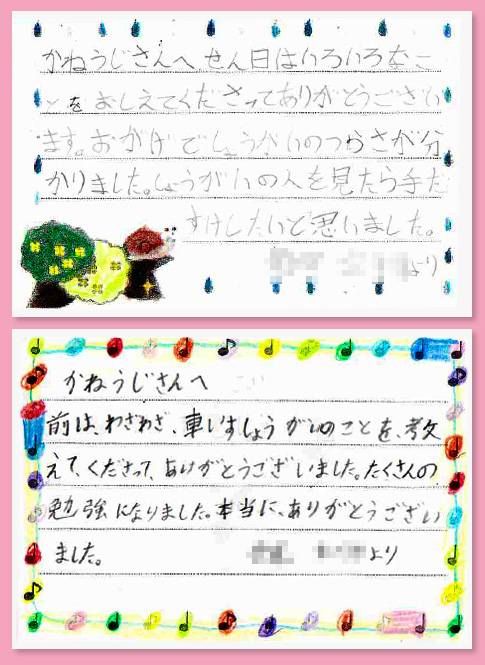 かねうじさんへ、せん日はいろいろなこ
とをおしえてくださってありがとうござい
ます。おかげでしょうがいのつらさが分
かりました。しょうがいの人を見たら手だ
すけしたいと思いました。
より
かねうじさんへ
前は、わざわざ、車いすしょうがいのことを、考
えて、くださって、ありがとうございました。たくさんの
勉強になりました。本当に、ありがとうござい
ました。
より